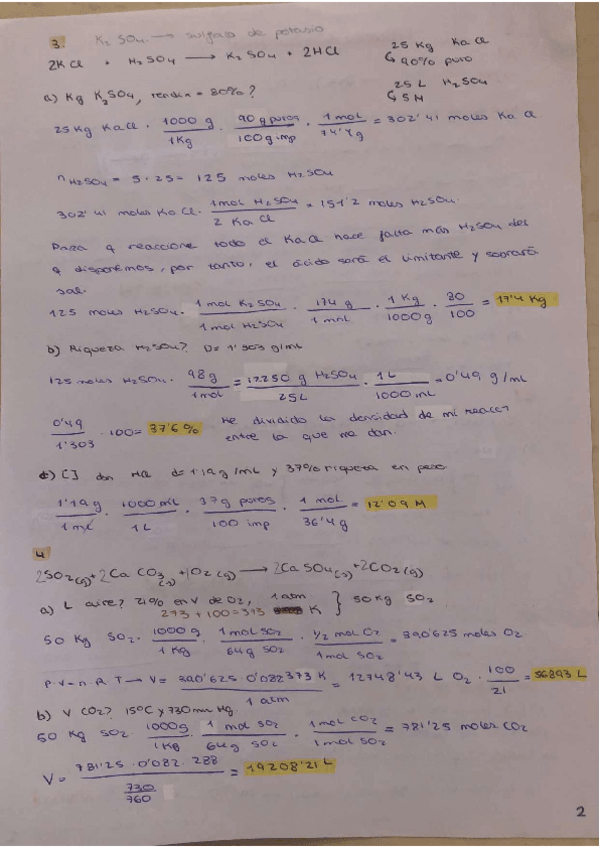 3. K₂ SO₄ → sulfato de potasio
2KCl + H₂ SO₄ → K₂ SO₄ + 2HCl
25 Kg KaCl
↳ 90% puro
25 L H₂SO₄
↳ 5M
a) Kg K₂SO₄, rendim = 80%?
25 Kg KaCl · 1000 g / 1Kg · 90 g puros / 100 g imp · 1 mol / 74'4 g = 302'41 moles KaCl
n H₂SO₄ = 5 · 25 = 125 moles H₂SO₄
302'41 moles KaCl · 1mol H₂SO₄ / 2 KaCl = 151'2 moles H₂SO₄
Para q reaccione todo el KaCl hace falta más H₂SO₄ del
q disponemos, por tanto, el ácido será el limitante y sobrará
sal.
125 moles H₂SO₄ · 1 mol K₂ SO₄ / 1 mol H₂SO₄ · 174 g / 1 mol · 1 Kg / 1000 g · 80 / 100 = 17'4 Kg
b) Riqueza H₂SO₄? D = 1'303 g/mL
125 moles H₂SO₄ · 98 g / 1 mol = 12250 g H₂SO₄ / 25L · 1L / 1000 mL = 0'49 g/mL
0'49 / 1'303 · 100 = 37'6 % He dividido la densidad de mi reacc?
entre la que me dan.
c) [ ] dm HCl d = 1'19 g/mL y 37% riqueza en peso
1'19 g / 1 mL · 1000 mL / 1L · 37 g puros / 100 imp · 1 mol / 36'4 g = 12'09 M
4.
2SO₂(g) + 2Ca CO₃(s) + 1O₂(g) → 2Ca SO₄(s) + 2CO₂(g)
a) L aire? 21% en V de O₂, 1 atm } 50 Kg SO₂
273 + 100 = 373 K
50 Kg SO₂ · 1000 g / 1 Kg · 1 mol SO₂ / 64g SO₂ · 1/2 mol O₂ / 1 mol SO₂ = 390'625 moles O₂
P · V = n · R · T → V = 390'625 · 0'082 373 K / 1 atm = 12748'43 L O₂ · 100 / 21 = 56893 L
b) V CO₂? 15ºC y 730 mm Hg.
50 Kg SO₂ · 1000g / 1Kg · 1 mol SO₂ / 64g SO₂ · 1 mol CO₂ / 1 mol SO₂ = 781'25 moles CO₂
V = 781'25 · 0'082 · 288 / (730 / 760) = 19208'21 L
2